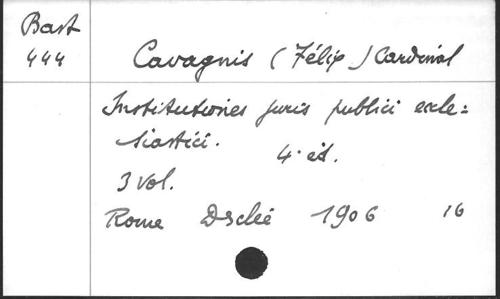 Bast
444
Cavagnis (Félip) Cardinal
Institutiones juris publici eccle=
siastici.
4. éd.
3 vol.
Rome Dsclée 1906 16